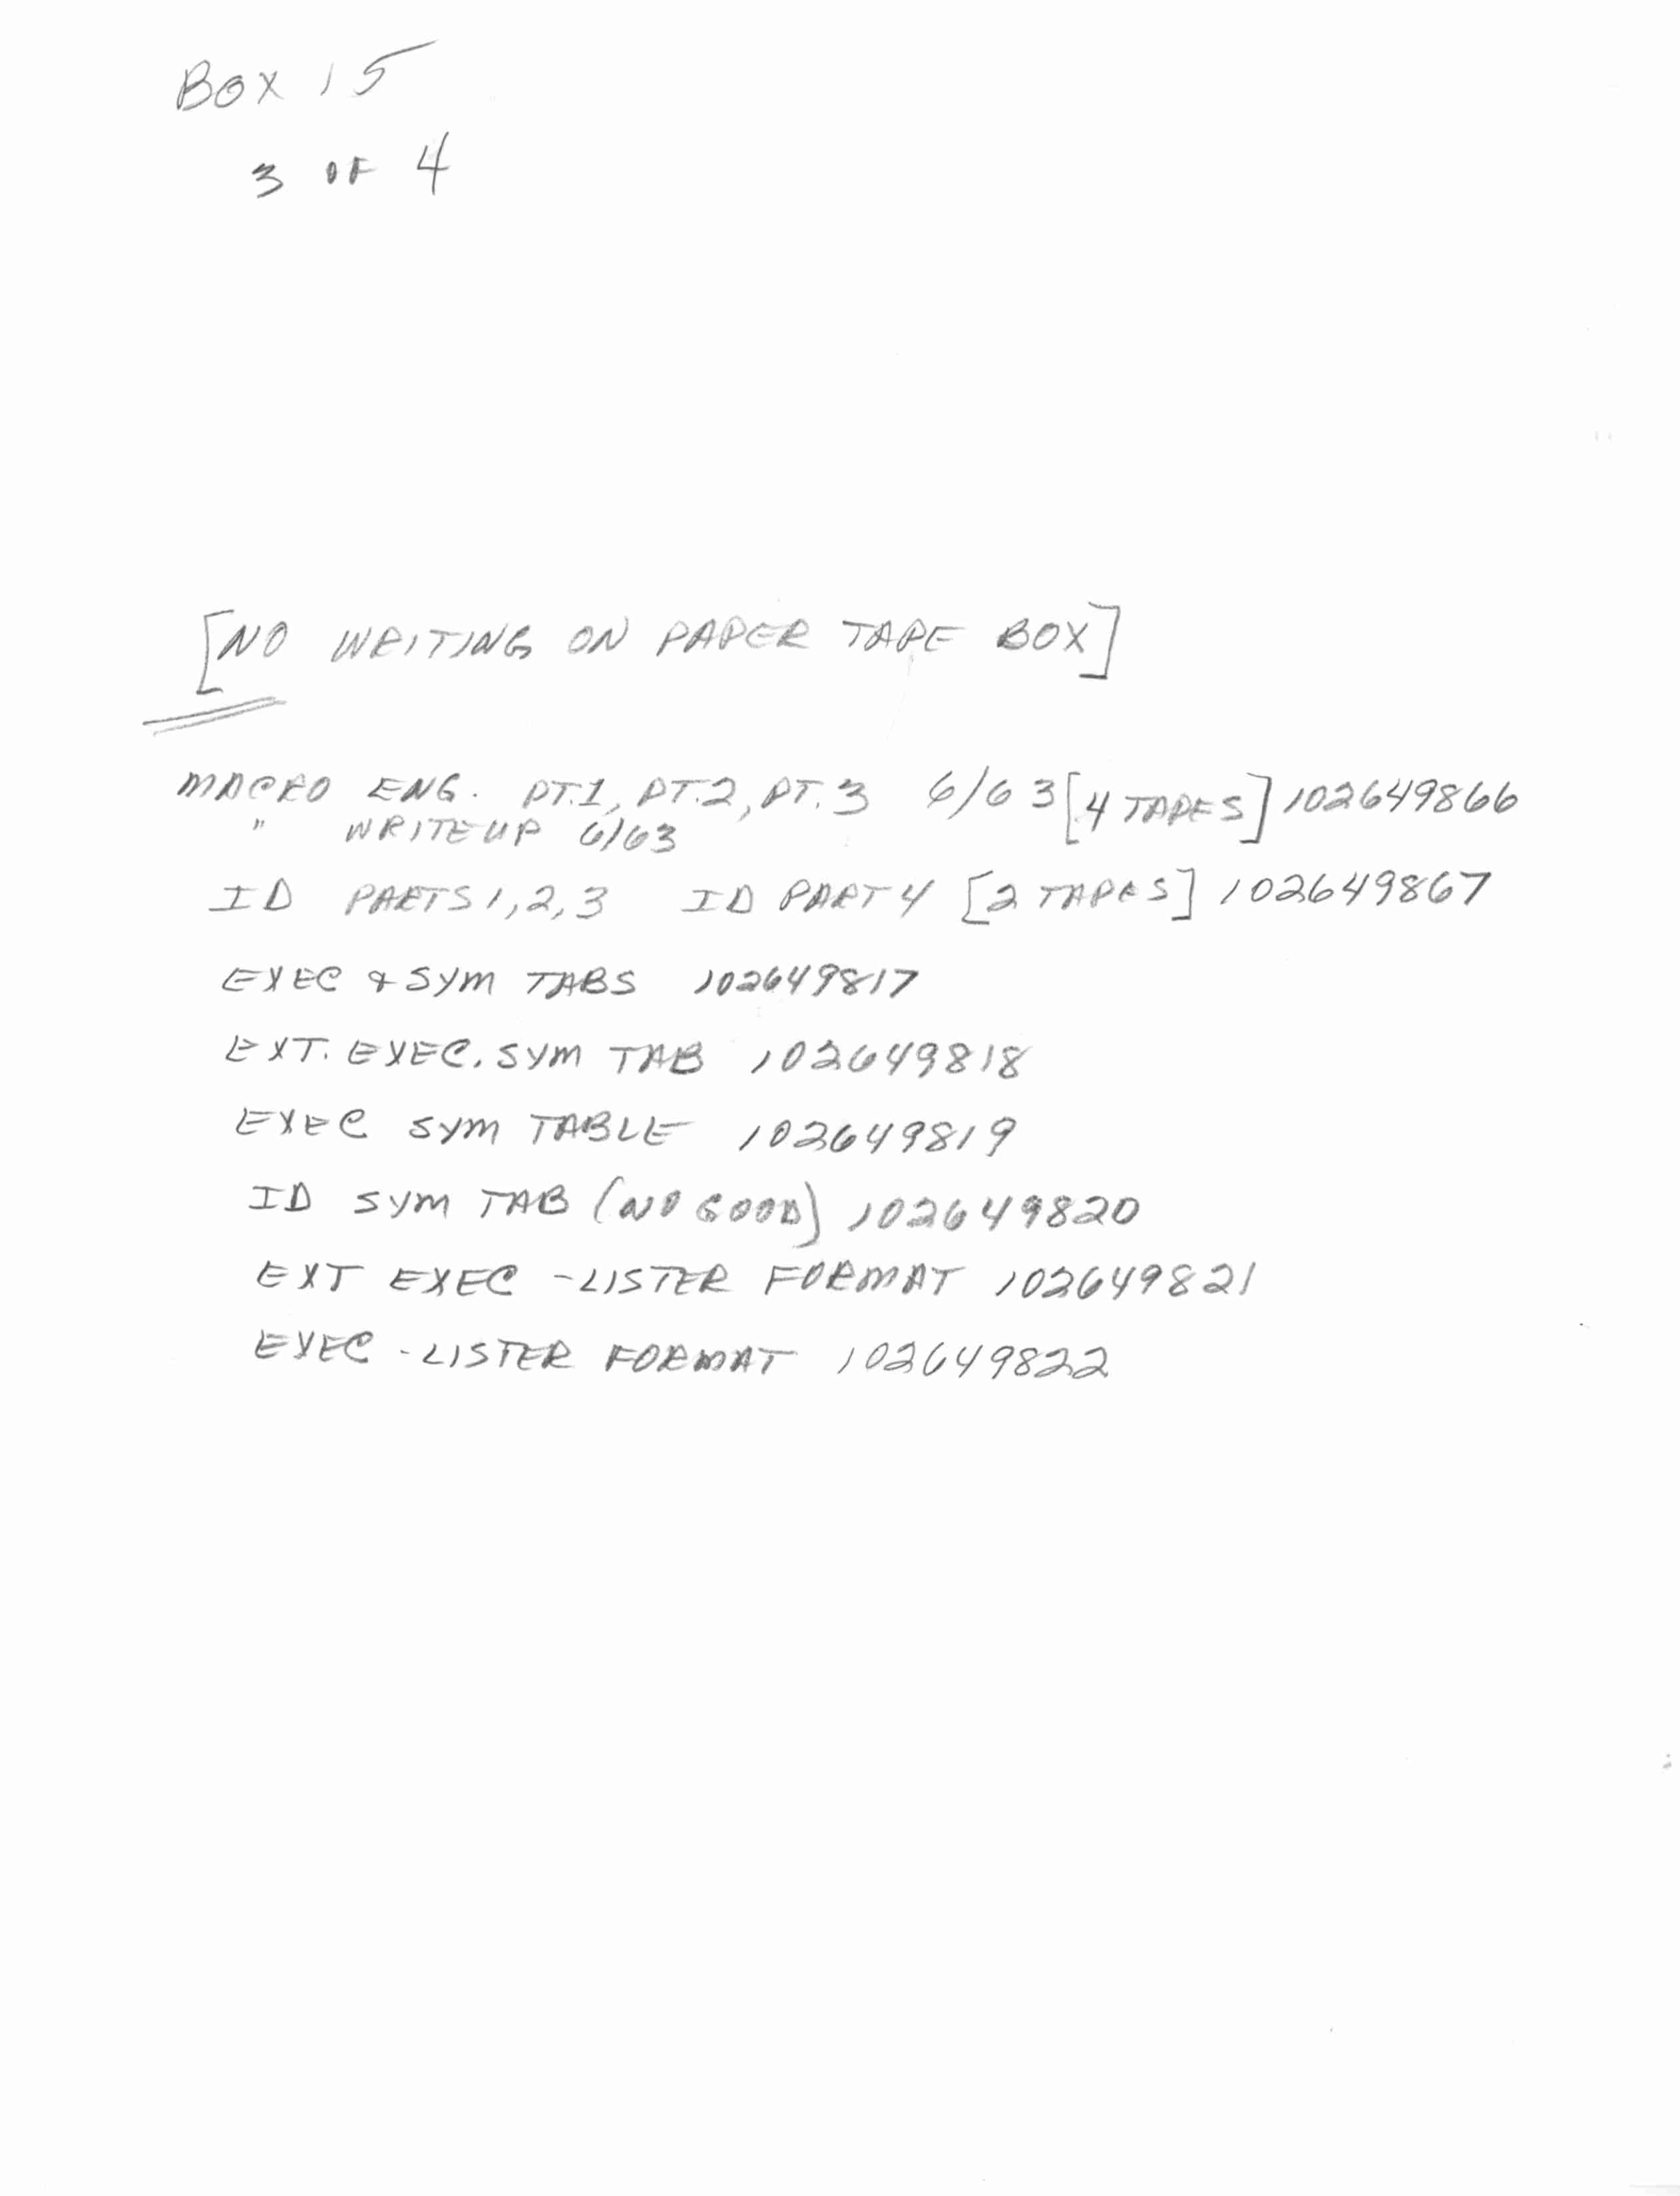 BOX 15
3 OF 4
[NO WRITING ON PAPER TAPE BOX]
MACRO ENG. PT.1, PT.2, PT.3 6/63 [4 TAPES] 102649866
" WRITEUP 6/63
ID PARTS 1,2,3 ID PART 4 [2 TAPES] 102649867
EXEC & SYM TABS 102649817
EXT. EXEC. SYM TAB 102649818
EXEC SYM TABLE 102649819
ID SYM TAB (NO GOOD) 102649820
EXT EXEC - LISTER FORMAT 102649821
EXEC - LISTER FORMAT 102649822